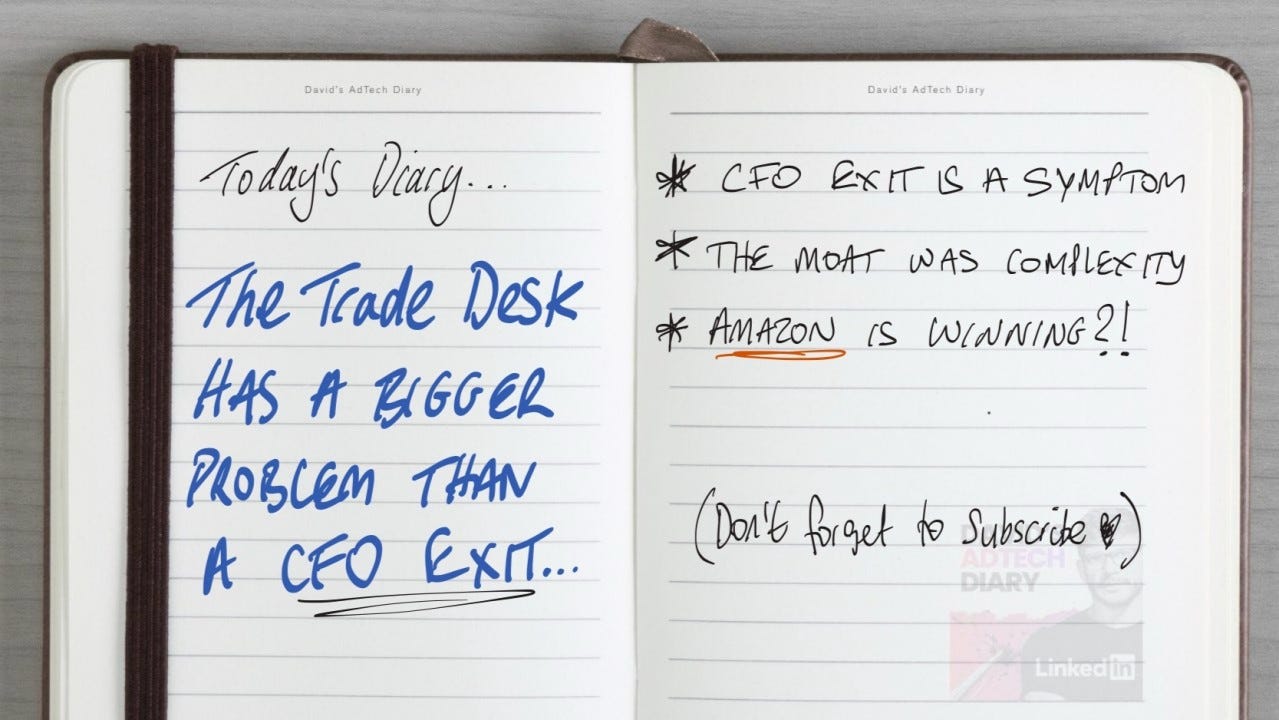 David's AdTech Diary
Today's Diary...
The Trade Desk
HAS A BIGGER
PROBLEM THAN
A CFO EXIT...
David's AdTech Diary
* CFO EXIT IS A SYMPTOM
* THE MOAT WAS COMPLEXITY
* AMAZON IS WINNING?!
(Don't forget to Subscribe ♥)
ADTECH
DIARY
LinkedIn